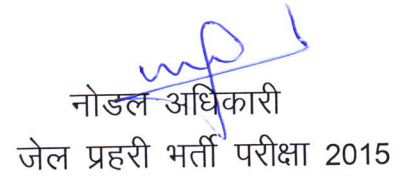 नोडल अधिकारी
जेल प्रहरी भर्ती परीक्षा 2015